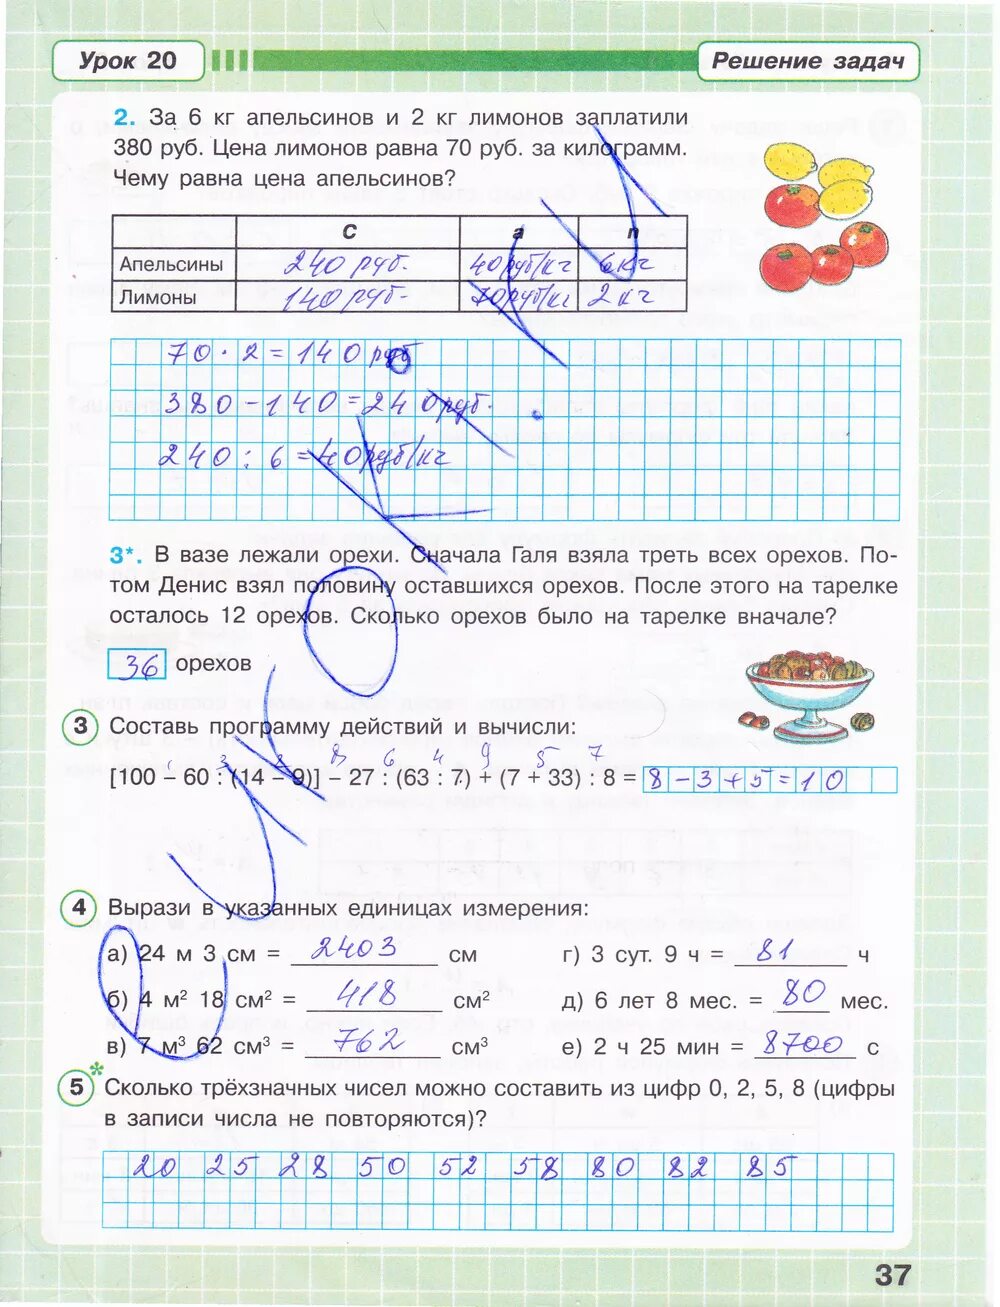 Урок 20
Решение задач
2. За 6 кг апельсинов и 2 кг лимонов заплатили
380 руб. Цена лимонов равна 70 руб. за килограмм.
Чему равна цена апельсинов?
С а n
Апельсины 240 руб. 40 руб/кг 6 кг
Лимоны 140 руб. 70 руб/кг 2 кг
70 · 2 = 140 руб
380 - 140 = 240 руб.
240 : 6 = 40 руб/кг
3*. В вазе лежали орехи. Сначала Галя взяла треть всех орехов. По-
том Денис взял половину оставшихся орехов. После этого на тарелке
осталось 12 орехов. Сколько орехов было на тарелке вначале?
36 орехов
3 Составь программу действий и вычисли:
1 3 2 8 6 4 9 5 7
[100 – 60 : (14 – 9)] – 27 : (63 : 7) + (7 + 33) : 8 = 8 - 3 + 5 = 10
4 Вырази в указанных единицах измерения:
а) 24 м 3 см = 2403 см г) 3 сут. 9 ч = 81 ч
б) 4 м² 18 см² = 418 см² д) 6 лет 8 мес. = 80 мес.
в) 7 м³ 62 см³ = 762 см³ е) 2 ч 25 мин = 8700 с
5* Сколько трёхзначных чисел можно составить из цифр 0, 2, 5, 8 (цифры
в записи числа не повторяются)?
20 25 28 50 52 58 80 82 85
37